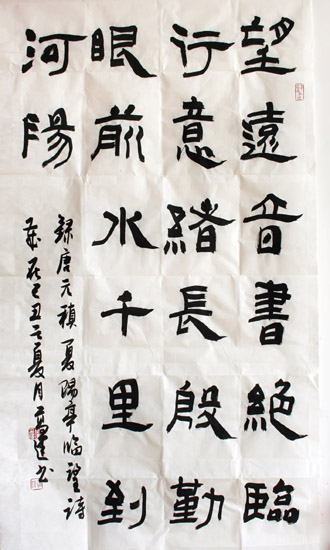 望遠音書絕臨
行意緒長殷勤
眼前水千里到
河陽
録唐元稹夏陽亭臨望詩
歲在己丑之夏月書